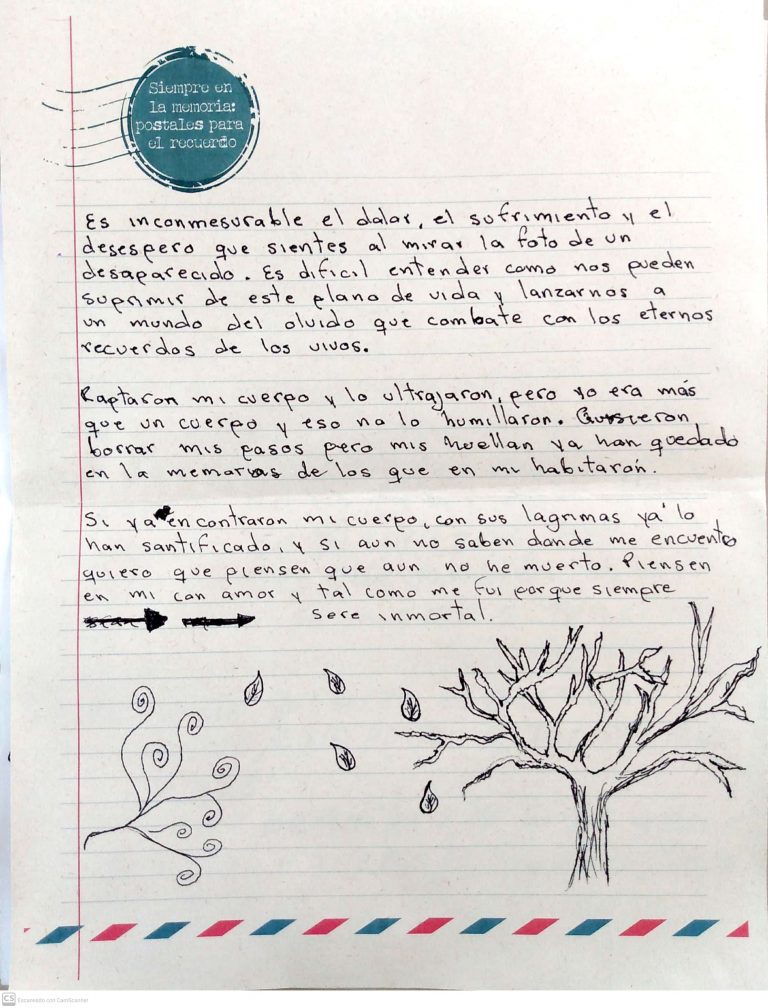 Siempre en
la memoria:
postales para
el recuerdo
Es inconmesurable el dolor, el sufrimiento y el
desespero que sientes al mirar la foto de un
desaparecido. Es dificil entender como nos pueden
suprimir de este plano de vida y lanzarnos a
un mundo del olvido que combate con los eternos
recuerdos de los vivos.
Raptaron mi cuerpo y lo ultrajaron, pero yo era más
que un cuerpo y eso no lo humillaron. Quisieron
borrar mis pasos pero mis huellan ya han quedado
en la memorias de los que en mi habitaron.
Si ya encontraron mi cuerpo, con sus lagrimas ya lo
han santificado, y si aun no saben donde me encuentro
quiero que piensen que aun no he muerto. Piensen
en mi con amor y tal como me fui porque siempre
sere inmortal.
CS Escaneado con CamScanner